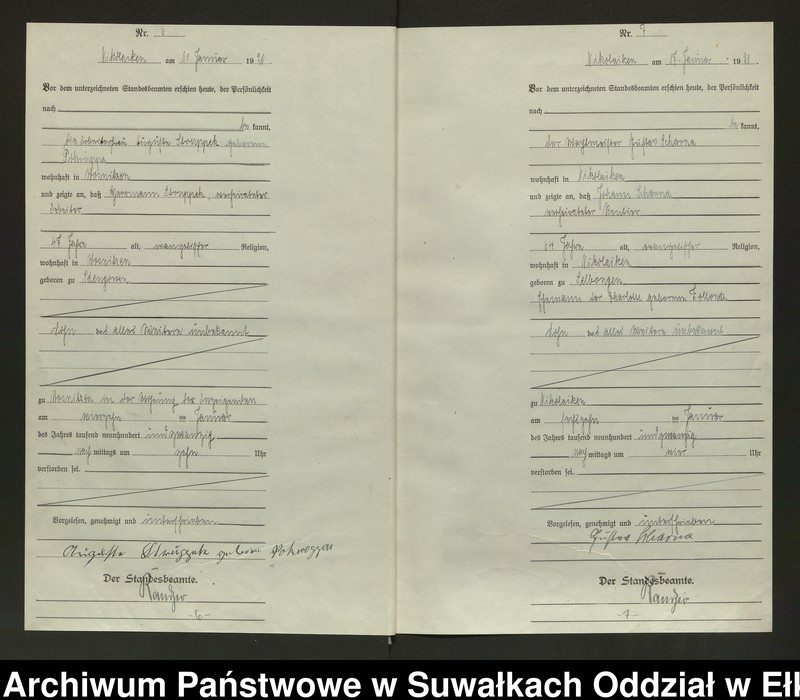 Nr. 6
Nikolaiken am 15 Januar 1920.
Vor dem unterzeichneten Standesbeamten erschien heute, der Persönlichkeit
nach
be kannt,
die Arbeiterfrau Auguste Struppek geborene
wohnhaft in Woznitzen
und zeigte an, daß Herrmann Struppek, verheirateter
Arbeiter
Jahre alt, evangelischer Religion,
wohnhaft in Woznitzen
geboren zu
Sohn des alles Weitere unbekannt
zu Woznitzen in der Wohnung der Anzeigenden
am vierzehn ten Januar
des Jahres tausend neunhundert undzwanzig
nach mittags um zehn Uhr
verstorben sei.
Vorgelesen, genehmigt und unterschrieben
Auguste Struppek geborene
Der Standesbeamte.
-6-
Nr. 7
Nikolaiken am Januar 1920.
Vor dem unterzeichneten Standesbeamten erschien heute, der Persönlichkeit
nach
be kannt,
der Wachtmeister Gustav Scharna
wohnhaft in Nikolaiken
und zeigte an, daß Johann Scharna,
verheirateter Rentier
64 Jahre alt, evangelischer Religion,
wohnhaft in Nikolaiken
geboren zu Selbongen
Ehemann der Charlotte geborene
Sohn des alles Weitere unbekannt
zu Nikolaiken
am sechszehn ten Januar
des Jahres tausend neunhundert undzwanzig
nach mittags um vier Uhr
verstorben sei.
Vorgelesen, genehmigt und unterschrieben
Gustav Scharna
Der Standesbeamte.
-7-
Archiwum Państwowe w Suwałkach Oddział w Eł